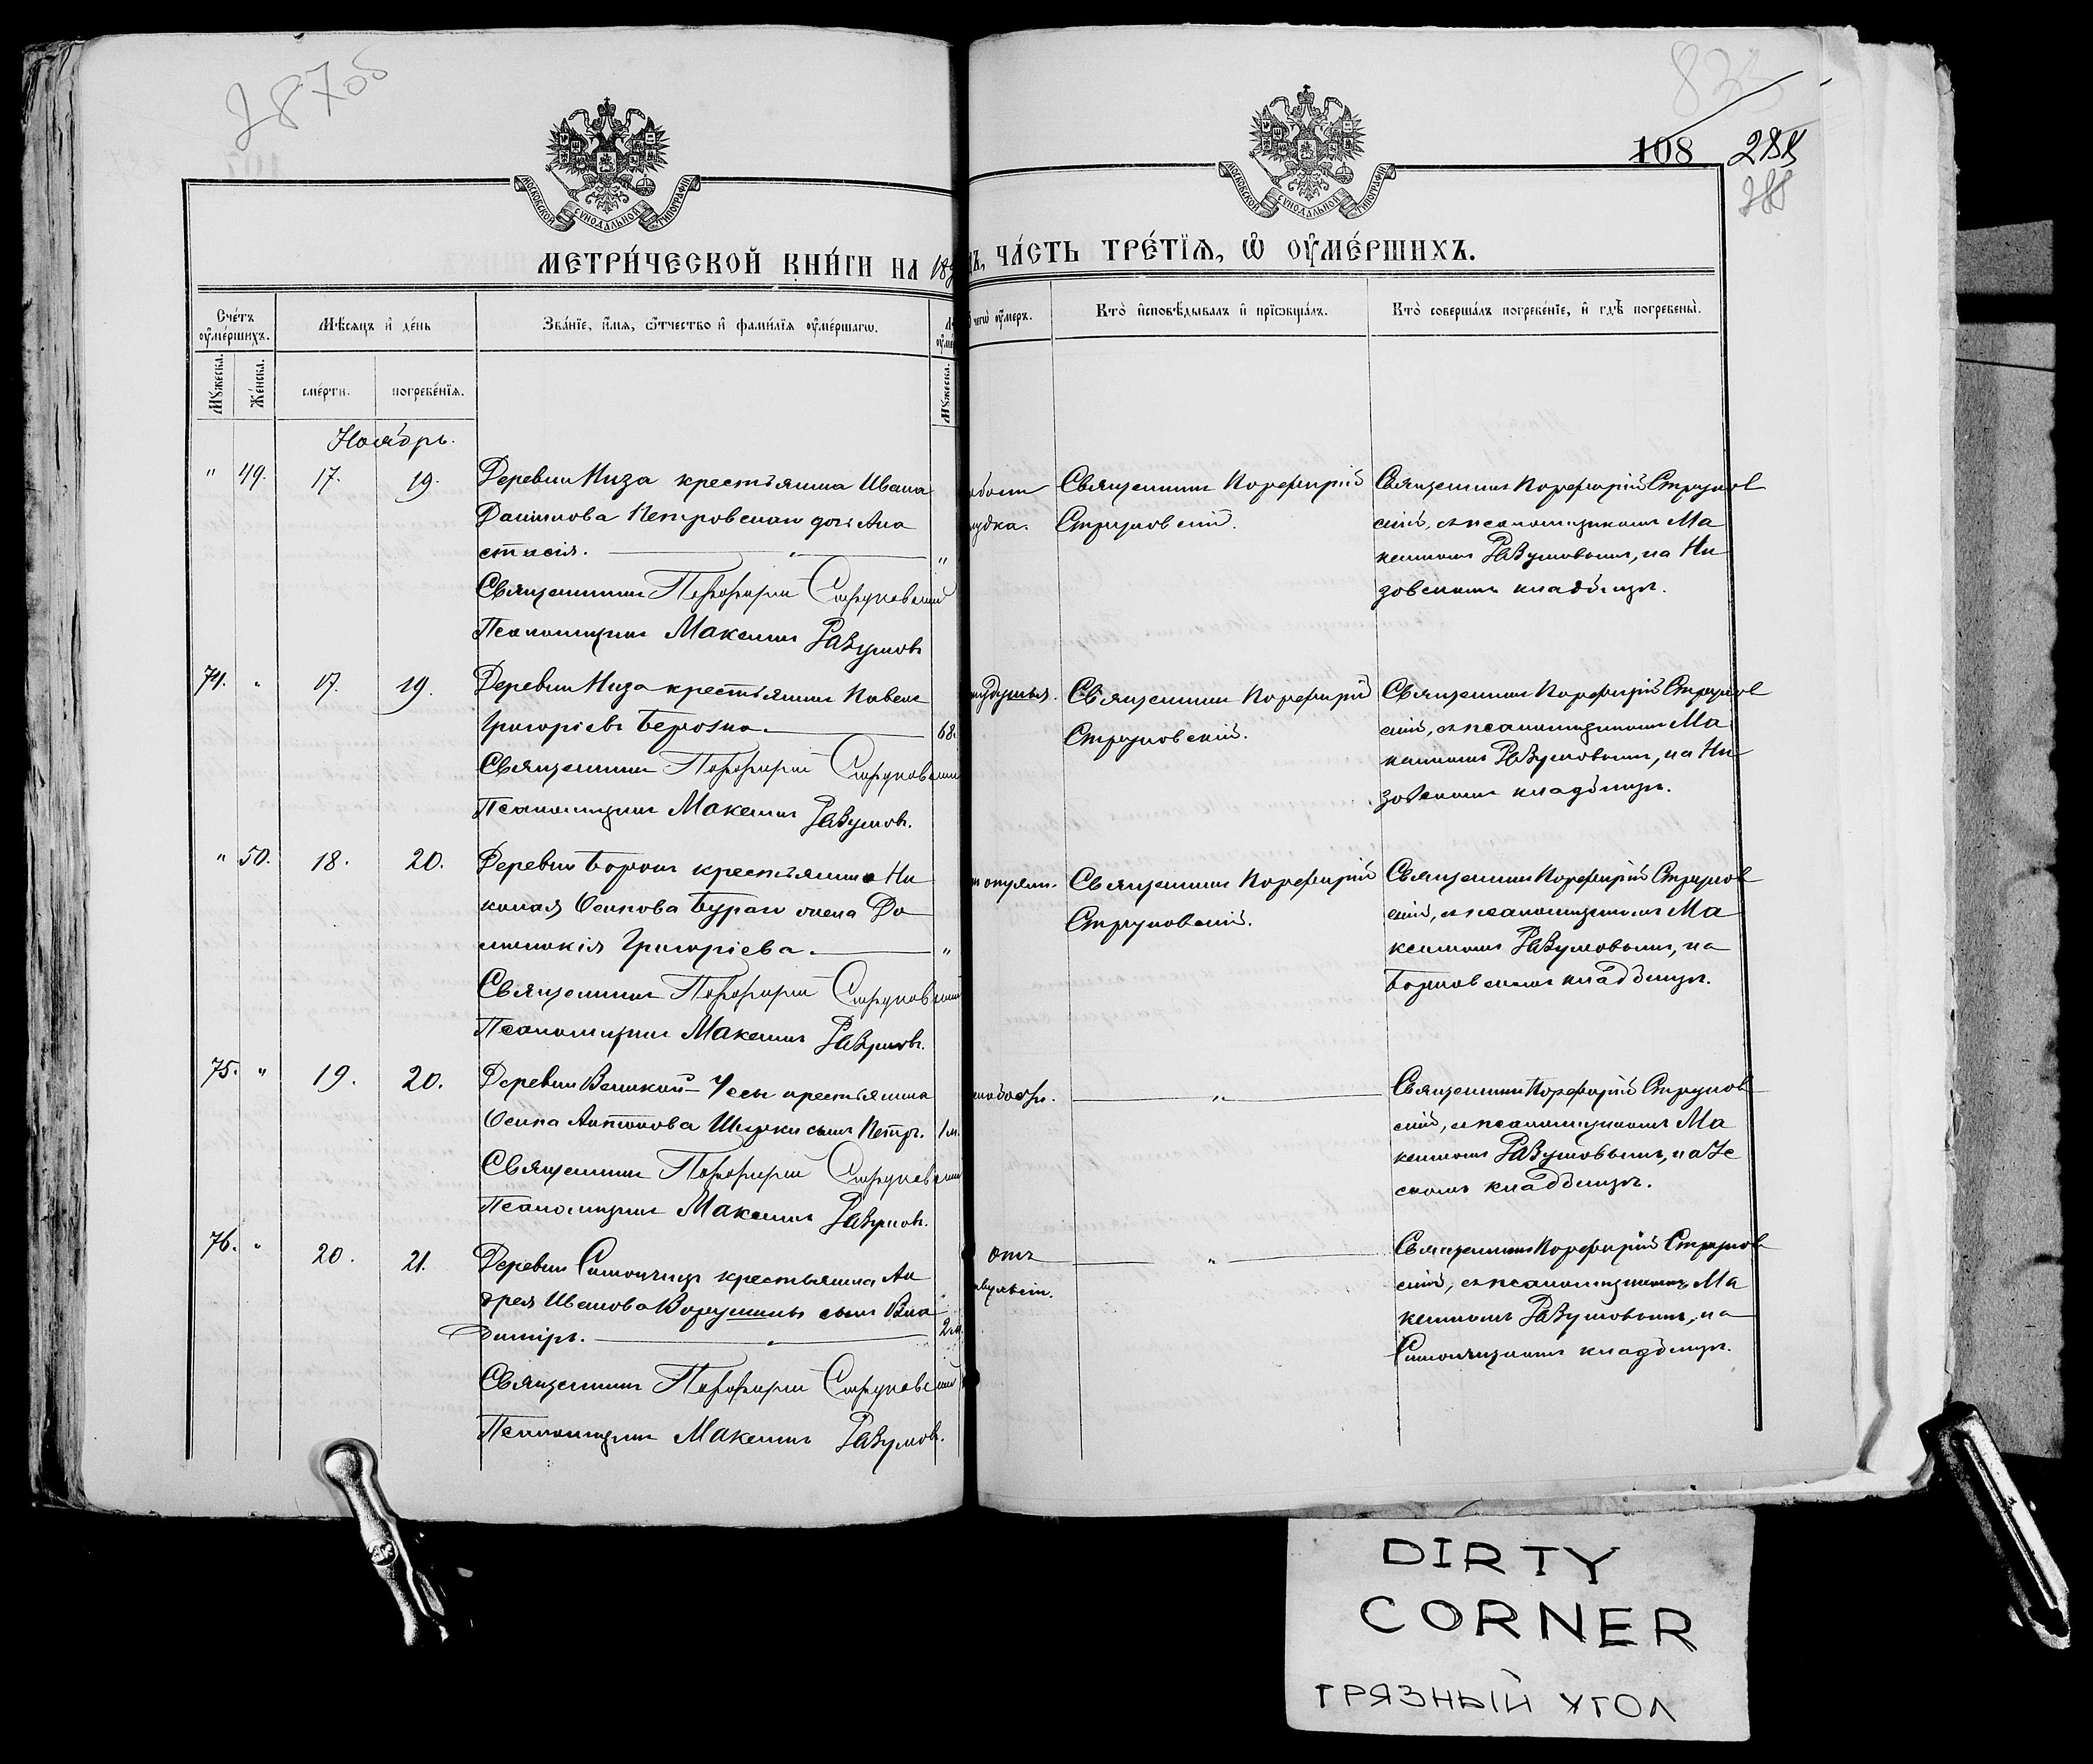 287 об
108 288
288
МОСКОВСКОЙ СУНОДАЛЬНОЙ ТИПОГРАФІИ
МОСКОВСКОЙ СУНОДАЛЬНОЙ ТИПОГРАФІИ
МЕТРИ́ЧЕСКОЙ КНИ́ГИ НА 18
ЧА́СТЬ ТРЕ́ТЇѦ, Ѡ ОУ҆МЕ́РШИХЪ.
Сче́тъ оу҆ме́ршихъ.
Мѣ́сяцъ и҆ де́нь
Зва́нїе, и҆́мѧ, ѻ҆́тчество и҆ фами́лїѧ оу҆ме́ршагѡ.
чегѡ̀ оу҆́меръ.
Кто̀ и҆сповѣ́дывалъ и҆ прїѡбща́лъ.
Кто̀ соверша́лъ погребе́нїе, и҆ гдѣ̀ погребены̀.
Мꙋ́жеска.
Же́нска.
сме́рти.
погребе́нїѧ.
Мꙋ́жеска.
Ноябрь.
" 49. 17. 19. Деревни Низа крестьянина Ивана
Данилова Петровскаго дочь Ана
стасія. "
Священникъ Порфирій Струковскій
Псаломщикъ Максимъ Разумовъ
Священникъ Порфирій
Струковскій.
Священникъ Порфирій Струков
скій, съ псаломщикомъ Ма
ксимомъ Разумовымъ, на Ни
зовскомъ кладбищѣ.
74. " 17. 19. Деревни Низа крестьянинъ Павелъ
Григорьевъ 68.
Священникъ Порфирій Струковскій
Псаломщикъ Максимъ Разумовъ.
Священникъ Порфирій
Струковскій.
Священникъ Порфирій Струков
скій, съ псаломщикомъ Ма
ксимомъ Разумовымъ, на Ни
зовскомъ кладбищѣ.
" 50. 18. 20. Деревни крестьянина Ни
колая Осипова жена До
Григорьева. "
Священникъ Порфирій Струковскій
Псаломщикъ Максимъ Разумовъ.
Священникъ Порфирій
Струковскій.
Священникъ Порфирій Струков
скій, съ псаломщикомъ Ма
ксимомъ Разумовымъ, на
кладбищѣ.
75. " 19. 20. Деревни Великой-Чесы крестьянина
Осипа Антонова сынъ Петръ. 1 м.
Священникъ Порфирій Струковскій
Псаломщикъ Максимъ Разумовъ.
"
Священникъ Порфирій Струков
скій, съ псаломщикомъ Ма
ксимомъ Разумовымъ, на Че
скомъ кладбищѣ.
76. " 20. 21. Деревни крестьянина Ан
дрея Иванова сынъ Вла
диміръ. " 2 м.
Священникъ Порфирій Струковскій
Псаломщикъ Максимъ Разумовъ.
отъ
"
Священникъ Порфирій Струков
скій, съ псаломщикомъ Ма
ксимомъ Разумовымъ, на
кладбищѣ.
DIRTY
CORNER
ГРЯЗНЫЙ УГОЛ